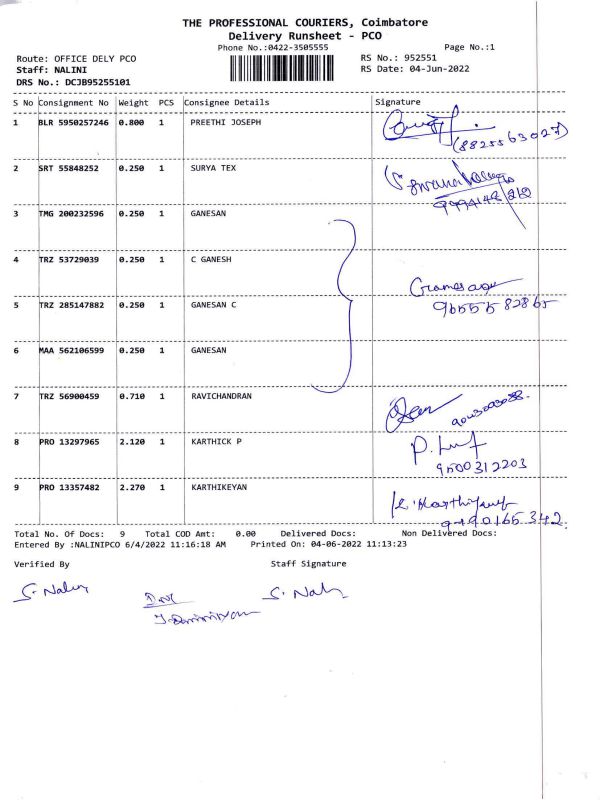 THE PROFESSIONAL COURIERS, Coimbatore
Delivery Runsheet - PCO
Phone No.:0422-3505555 Page No.:1
Route: OFFICE DELY PCO RS No.: 952551
Staff: NALINI RS Date: 04-Jun-2022
DRS No.: DCJB95255101
S No Consignment No Weight PCS Consignee Details Signature
1 BLR 5950257246 0.800 1 PREETHI JOSEPH
(8825563027)
2 SRT 55848252 0.250 1 SURYA TEX
3 TMG 200232596 0.250 1 GANESAN
4 TRZ 53729039 0.250 1 C GANESH
5 TRZ 285147882 0.250 1 GANESAN C
9655582865
6 MAA 562106599 0.250 1 GANESAN
7 TRZ 56900459 0.710 1 RAVICHANDRAN
8 PRO 13297965 2.120 1 KARTHICK P
9500312203
9 PRO 13357482 2.270 1 KARTHIKEYAN
Total No. Of Docs: 9 Total COD Amt: 0.00 Delivered Docs: Non Delivered Docs:
Entered By :NALINIPCO 6/4/2022 11:16:18 AM Printed On: 04-06-2022 11:13:23
Verified By Staff Signature
S. Nalini S. Nali